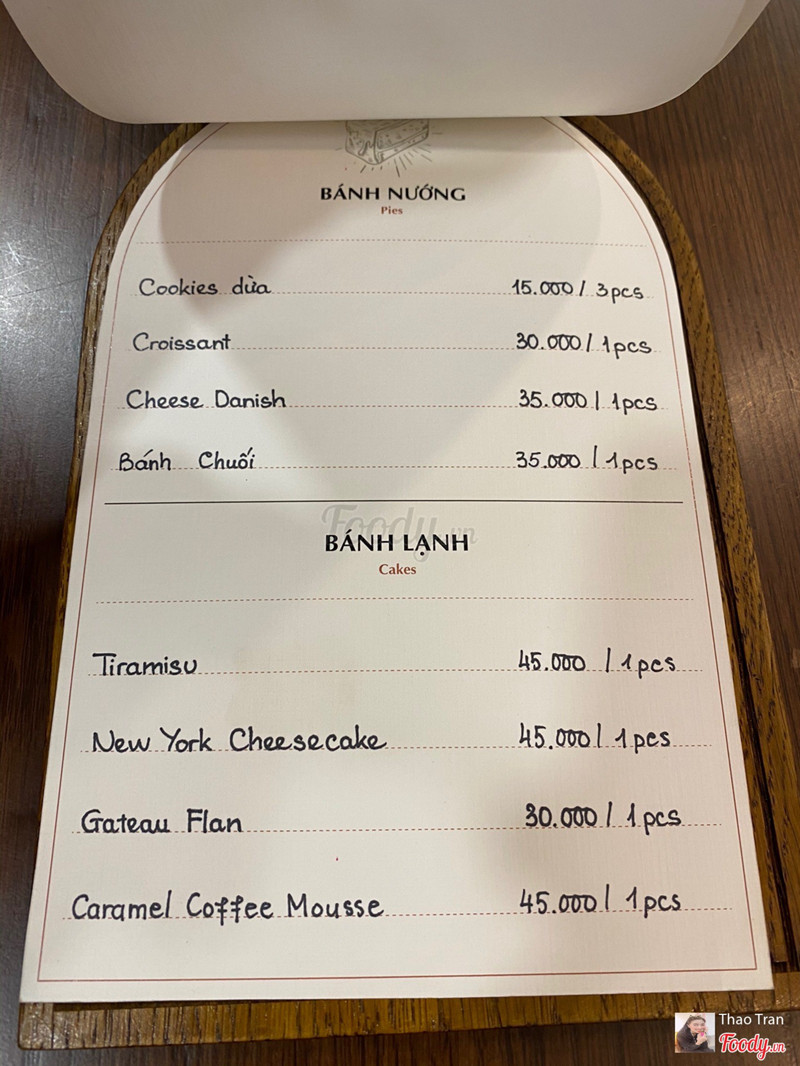 BÁNH NƯỚNG
Pies
Cookies dừa 15.000 / 3pcs
Croissant 30.000 / 1pcs
Cheese Danish 35.000 / 1pcs
Bánh Chuối 35.000 / 1pcs
Foody.vn
BÁNH LẠNH
Cakes
Tiramisu 45.000 / 1pcs
New York Cheesecake 45.000 / 1pcs
Gateau Flan 30.000 / 1pcs
Caramel Coffee Mousse 45.000 / 1pcs
Thao Tran
Foody.vn